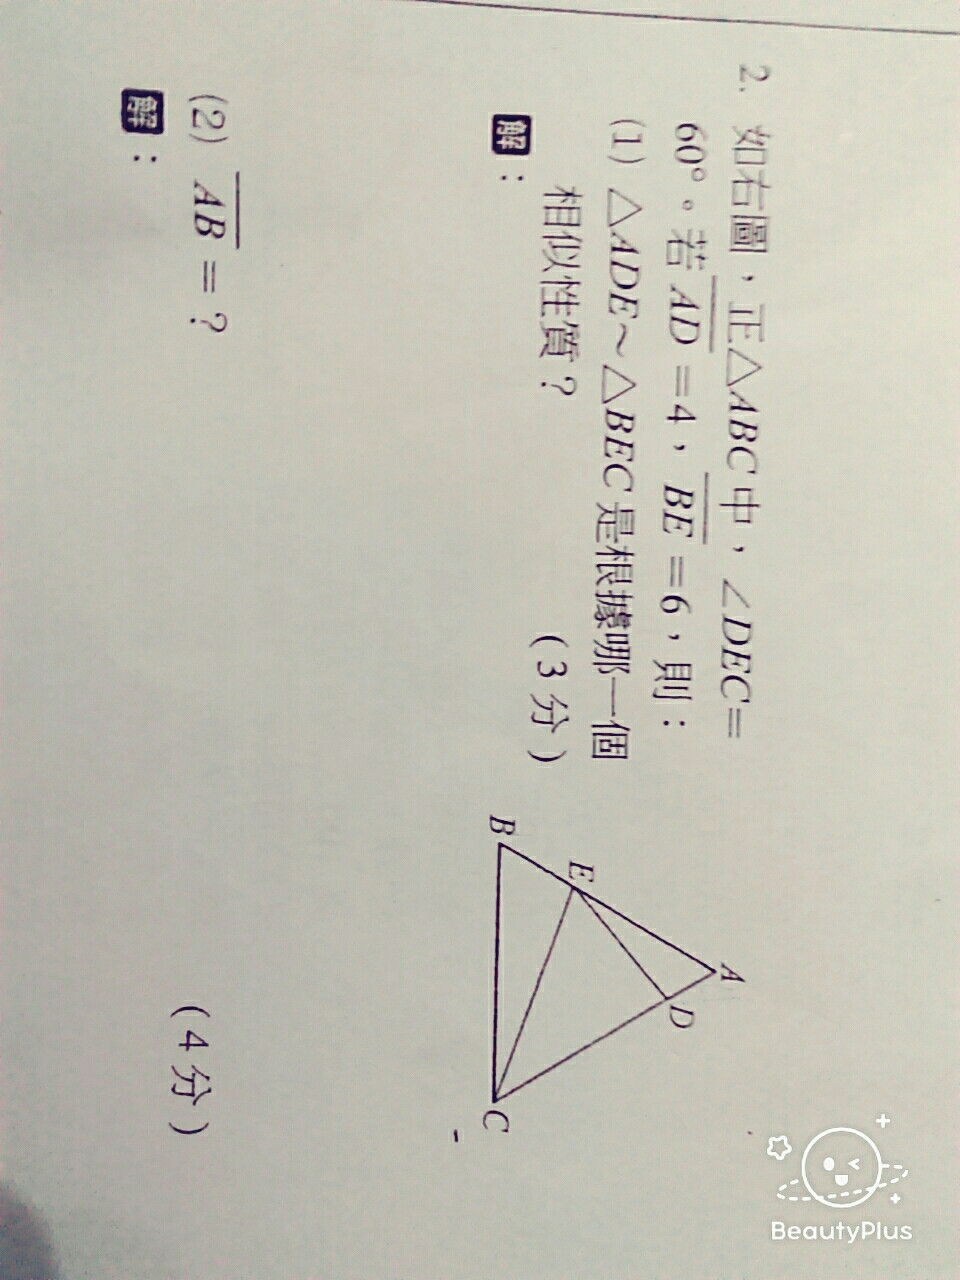 2. 如右圖，正△ABC中，∠DEC=
60°。若AD=4，BE=6，則：
(1) △ADE~△BEC是根據哪一個
相似性質？ (3分)
解：
(2) AB=？ (4分)
解：
A
D
E
B
C
BeautyPlus